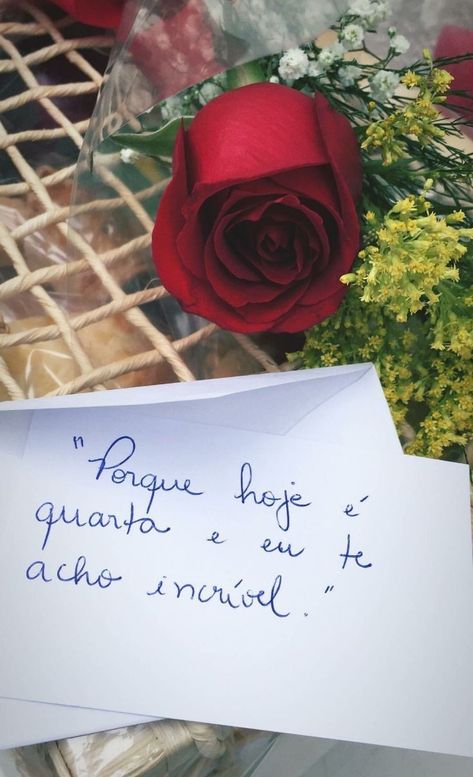 "Porque hoje é
quarta e eu te
acho incrível."